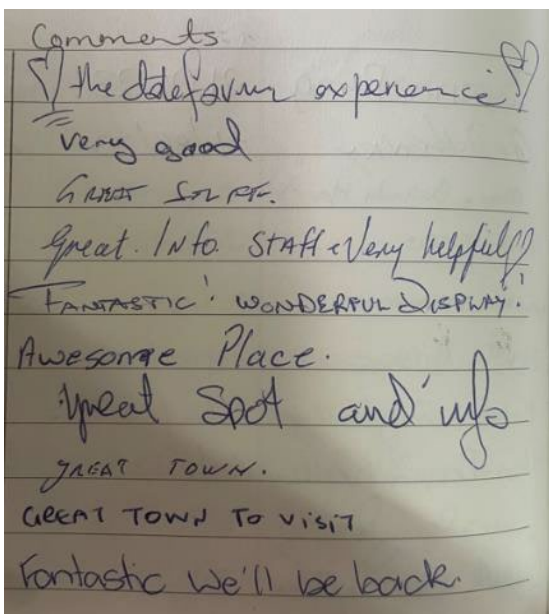 Comments
the experience
very good
GREAT
Great. Info. Staff & Very helpful
FANTASTIC! WONDERFUL DISPLAY!
Awesome Place.
Great Spot and info
GREAT TOWN.
GREAT TOWN TO VISIT
Fantastic We'll be back.